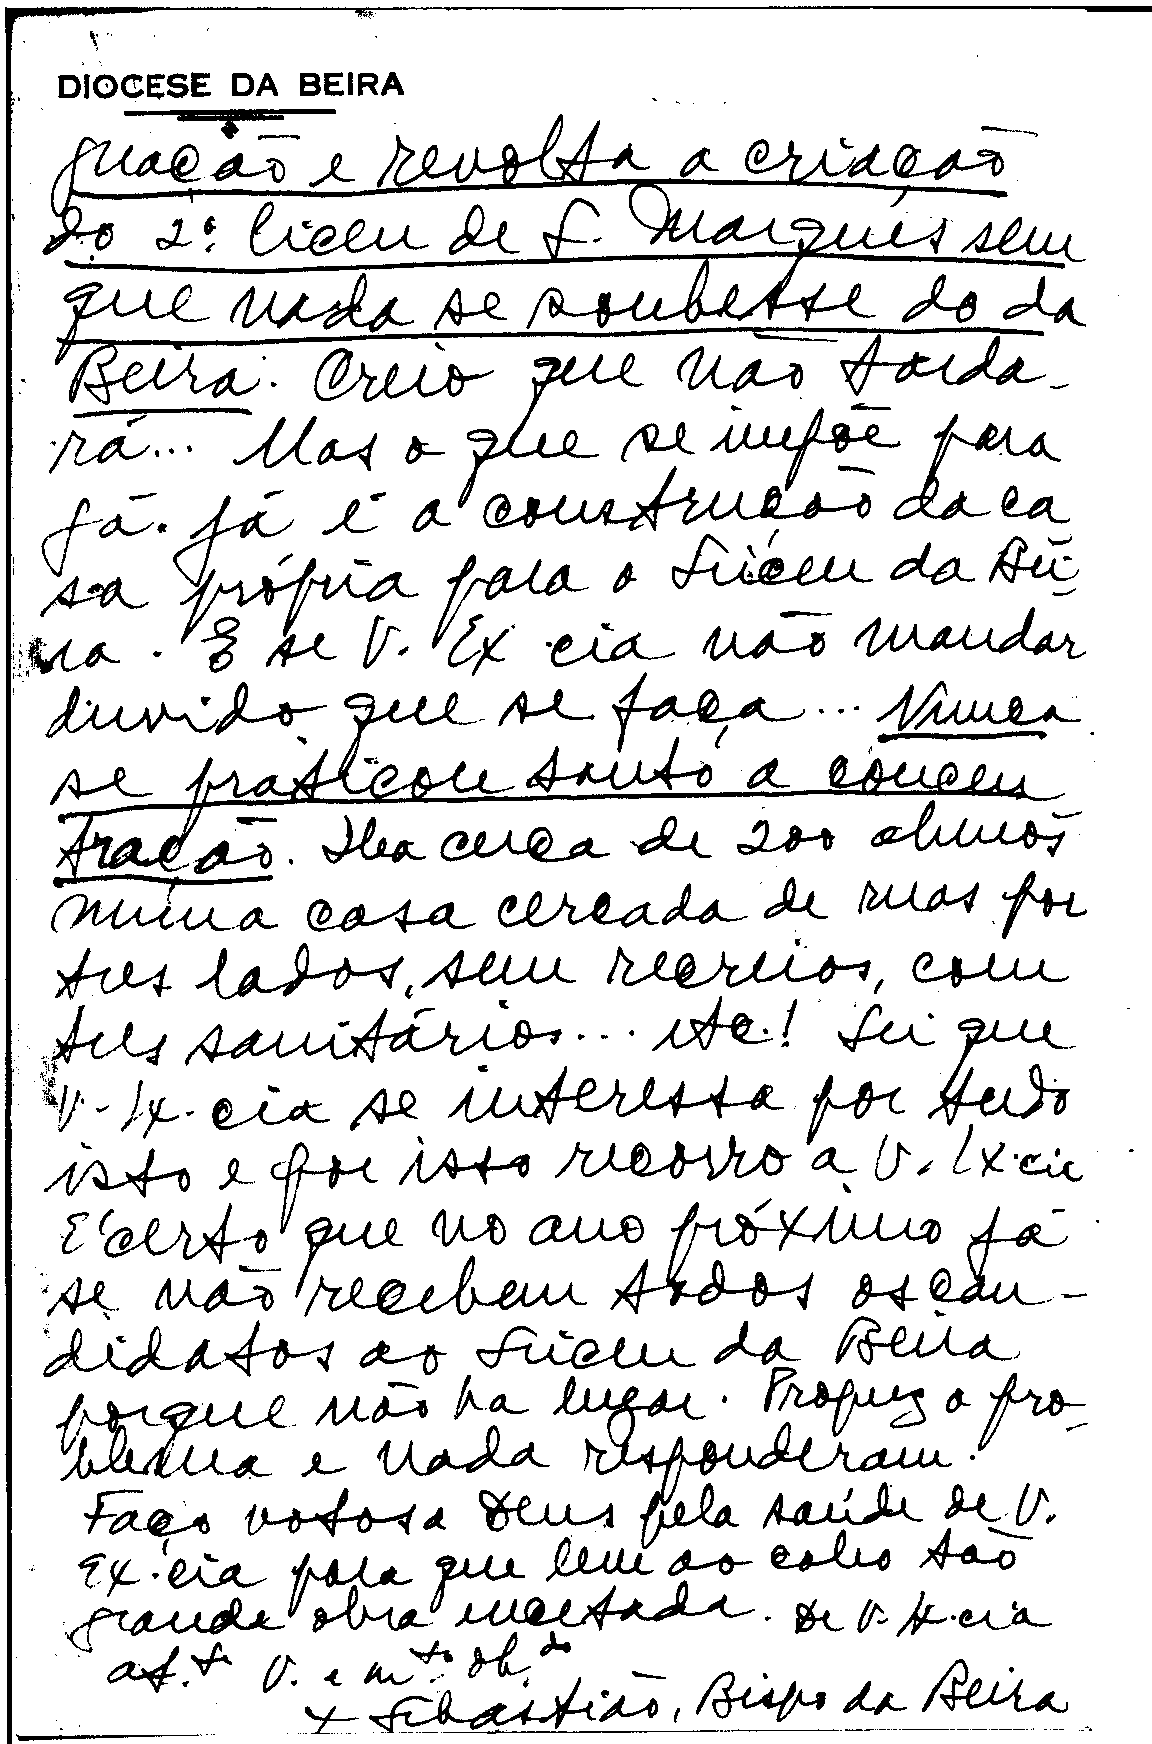 DIOCESE DA BEIRA
gnação e revolta a criação
do 2º. liceu de L. Marques sem
que nada se soubesse do da
Beira. Creio que não tarda-
rá... Mas o que se impõe para
já. já é a construção da ca
sa própria para o Liceu da Bei-
ra. E se V. Ex.cia não mandar
duvido que se faça... Nunca
se praticou tanto a concen
tração. Ha cerca de 200 alunos
numa casa cercada de ruas por
tres lados, sem recreios, com
tres sanitários... etc.! Sei que
V. Ex.cia se interessa por tudo
isto e por isso recorro a V. Ex.cia
É certo que no ano próximo já
se não recebem todos os can-
didatos ao Liceu da Beira
porque não ha lugar. Propuz o pro-
blema e nada responderam.
Faço votos a Deus pela saúde de V.
Ex.cia para que leve ao cabo tão
grande obra encetada. De V. Ex.cia
at.to V. e m.to ob.do
+ Sebastião, Bispo da Beira